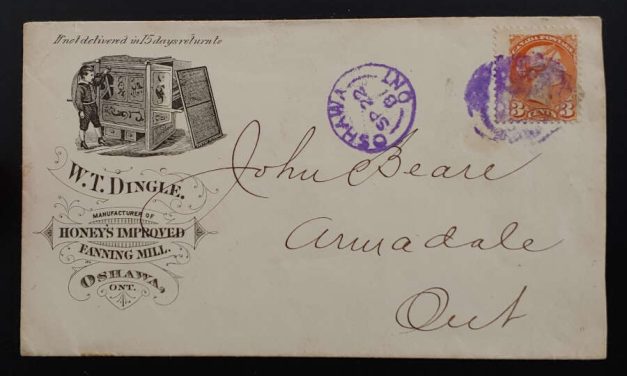 If not delivered in 15 days return to
W. T. DINGLE.
MANUFACTURER OF
HONEY'S IMPROVED
FANNING MILL.
OSHAWA,
ONT.
OSHAWA
SP 22
81
ONT
CANADA POSTAGE
3 CENTS 3
John Beare
Armadale
Ont